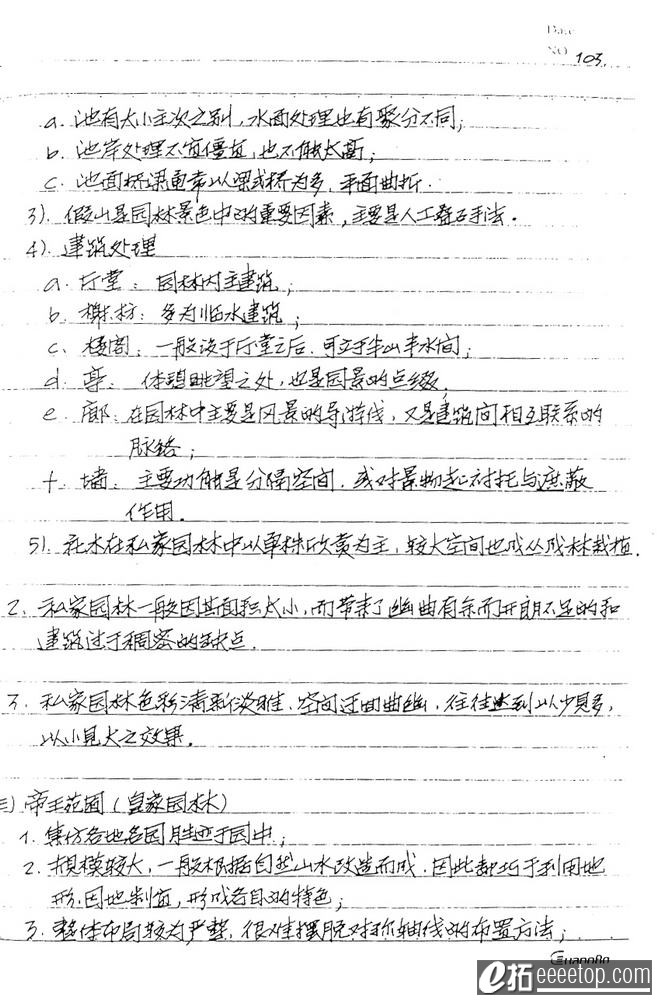 Date
NO 103.
a. 池有大小主次之别，水面处理也有聚分不同；
b. 池岸处理不宜僵直，也不能太高；
c. 池面桥梁通常以梁式桥为多，平面曲折．
3). 假山是园林景色中的重要因素，主要是人工叠石手法．
4). 建筑处理
a. 厅堂：园林内主建筑；
b. 榭枋：多为临水建筑；
c. 楼阁：一般设于厅堂之后．可立于半山半水间；
d. 亭：休憩眺望之处，也是园景的点缀．
e. 廊：在园林中主要是风景的导游线，又是建筑间相互联系的
脉络；
f. 墙：主要功能是分隔空间．或对景物起衬托与遮蔽
作用．
5). 花木在私家园林中以单株欣赏为主，较大空间也成丛成林栽植．
2. 私家园林一般因其面积太小，而带来了幽曲有余而开朗不足的和
建筑过于稠密的缺点．
3. 私家园林色彩清新淡雅．空间迂回曲幽，往往达到以少见多，
以小见大之效果．
三) 帝王苑囿（皇家园林）
1. 集仿各地名园胜迹于园中；
2. 规模较大，一般根据自然山水改造而成．因此都巧于利用地
形．因地制宜，形成各自的特色；
3. 整体布局较为严整．很难摆脱对称轴线的布置方法；
GuangBo
e拓 eeeetop.com